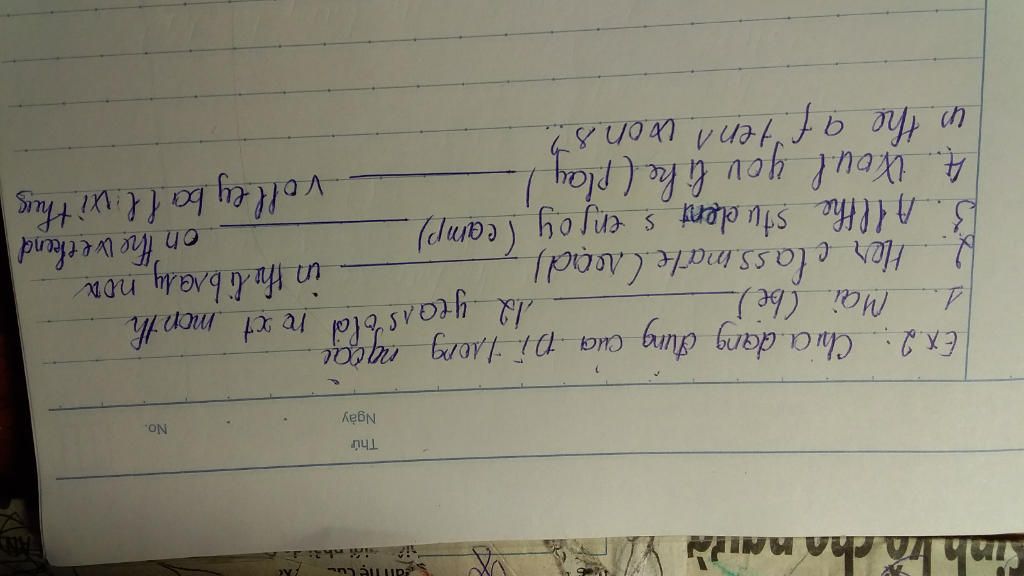 cho người
Thứ
Ngày No.
Ex 2: Chia dạng đung của pĩ trong ngoặc
1. Mai (be) ______ 12 years old next month
2. Her classmate (read) ______ in the library now
3. All the students enjoy (camp) ______ on the weekend
4. Woul you like (play) ______ volleyball with us
in the afternoons?